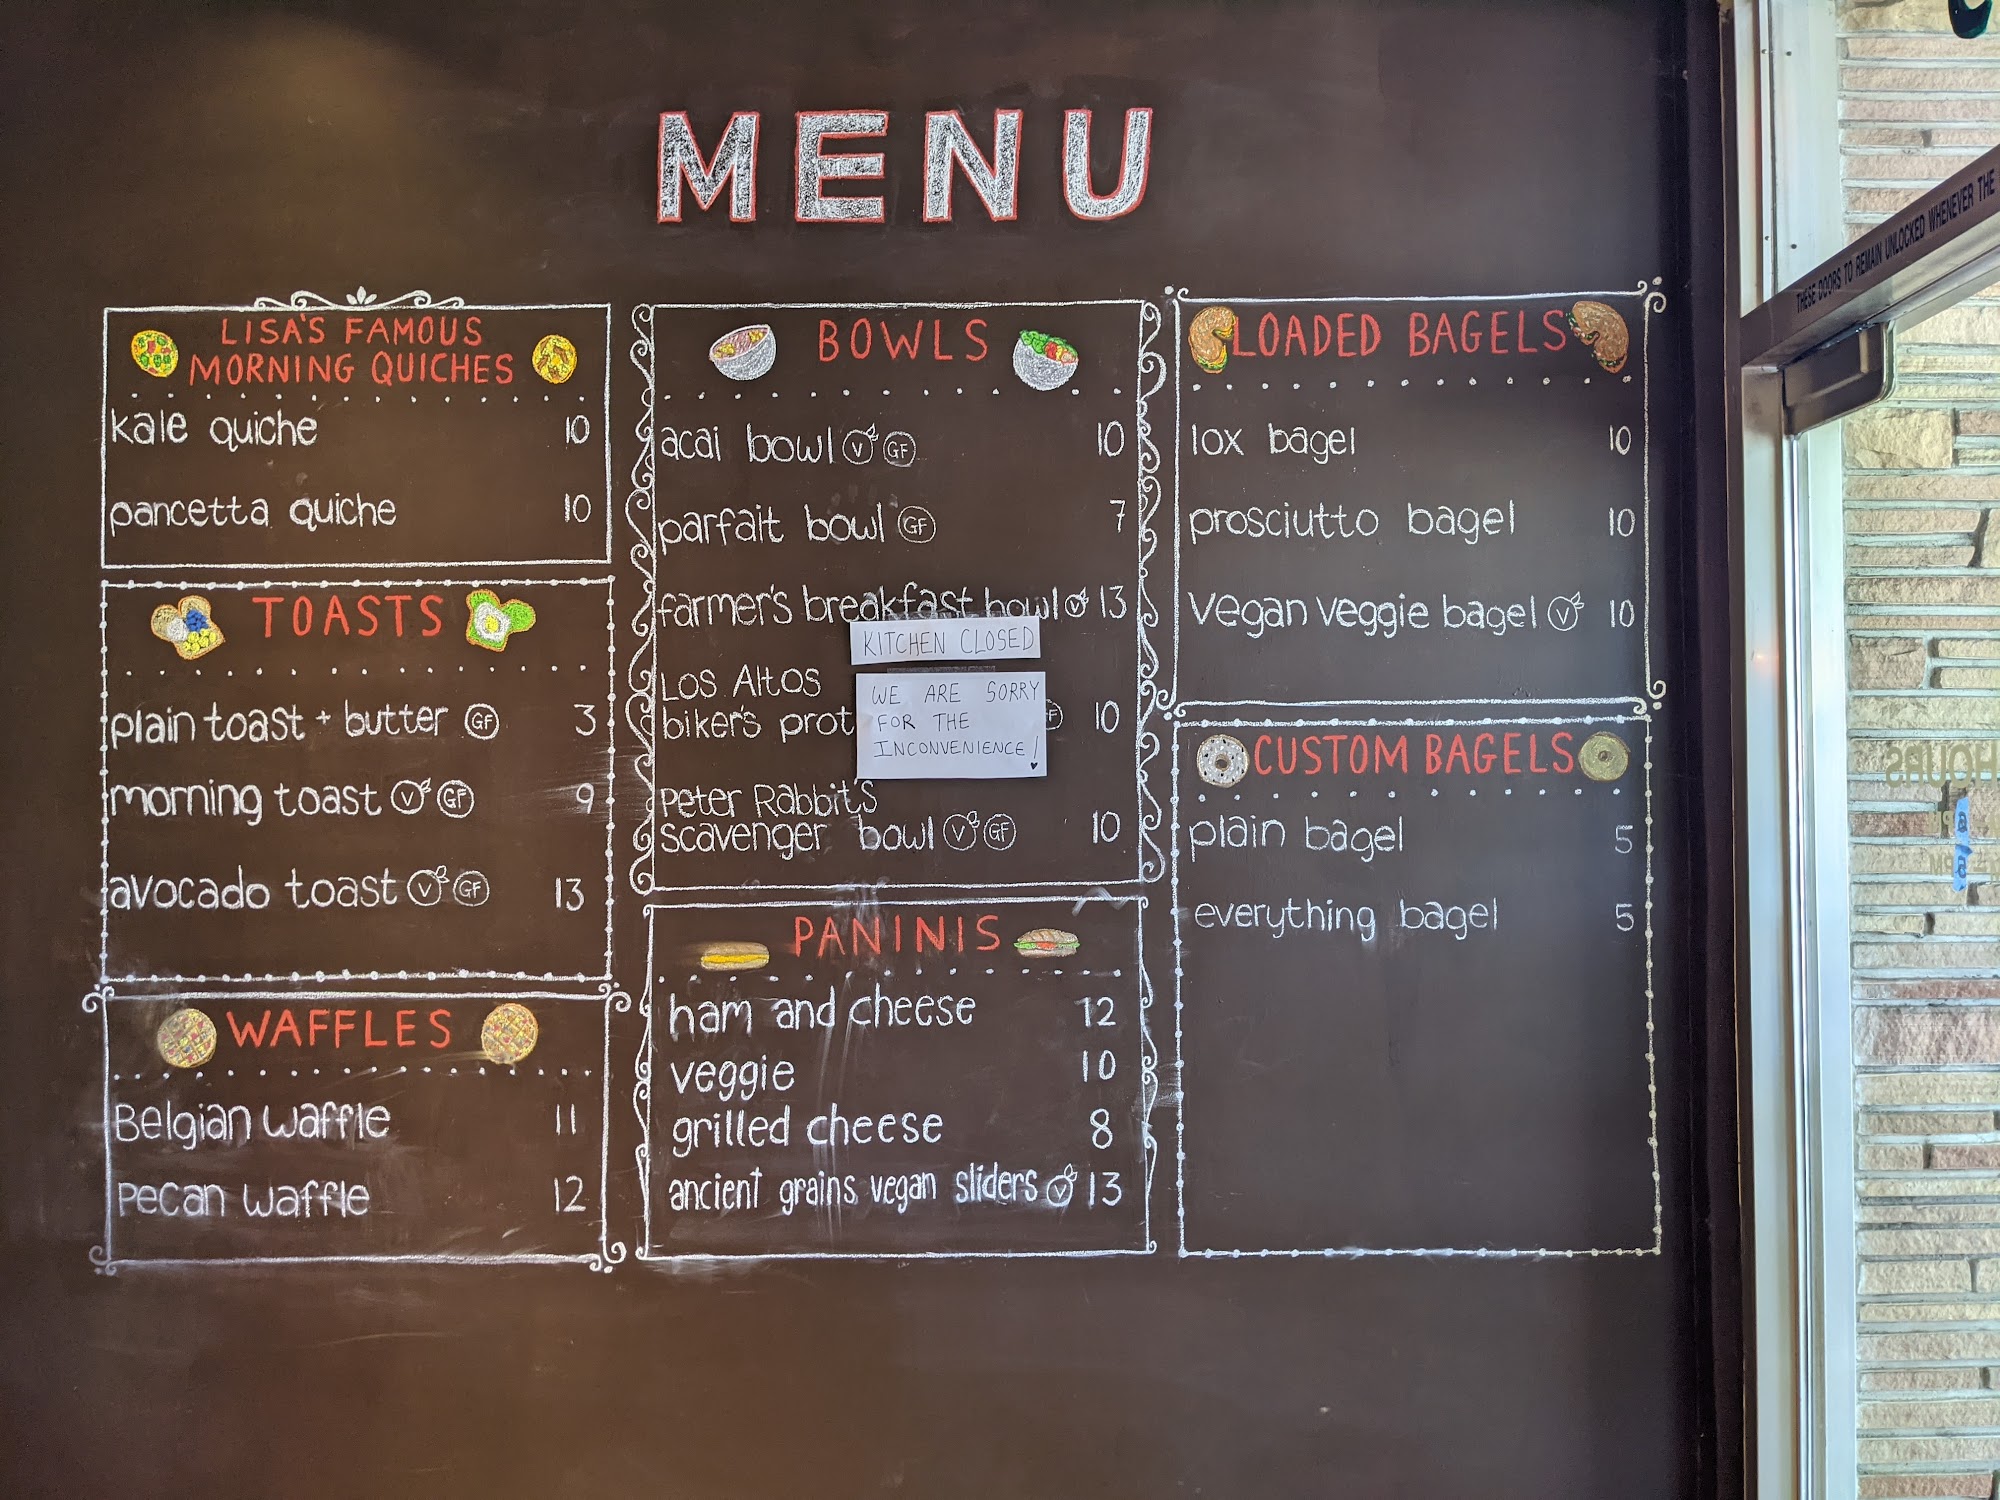 MENU
LISA'S FAMOUS
MORNING QUICHES
kale quiche 10
pancetta quiche 10
TOASTS
plain toast + butter GF 3
morning toast V GF 9
avocado toast V GF 13
WAFFLES
Belgian waffle 11
Pecan waffle 12
BOWLS
acai bowl V GF 10
parfait bowl GF 7
farmer's breakfast bowl V 13
KITCHEN CLOSED
WE ARE SORRY
FOR THE
INCONVENIENCE!
Los Altos
biker's 10
Peter Rabbit's
scavenger bowl V GF 10
PANINIS
ham and cheese 12
veggie 10
grilled cheese 8
ancient grains vegan sliders V 13
LOADED BAGELS
lox bagel 10
prosciutto bagel 10
vegan veggie bagel V 10
CUSTOM BAGELS
plain bagel 5
everything bagel 5
THESE DOORS TO REMAIN UNLOCKED WHENEVER THE
HOURS